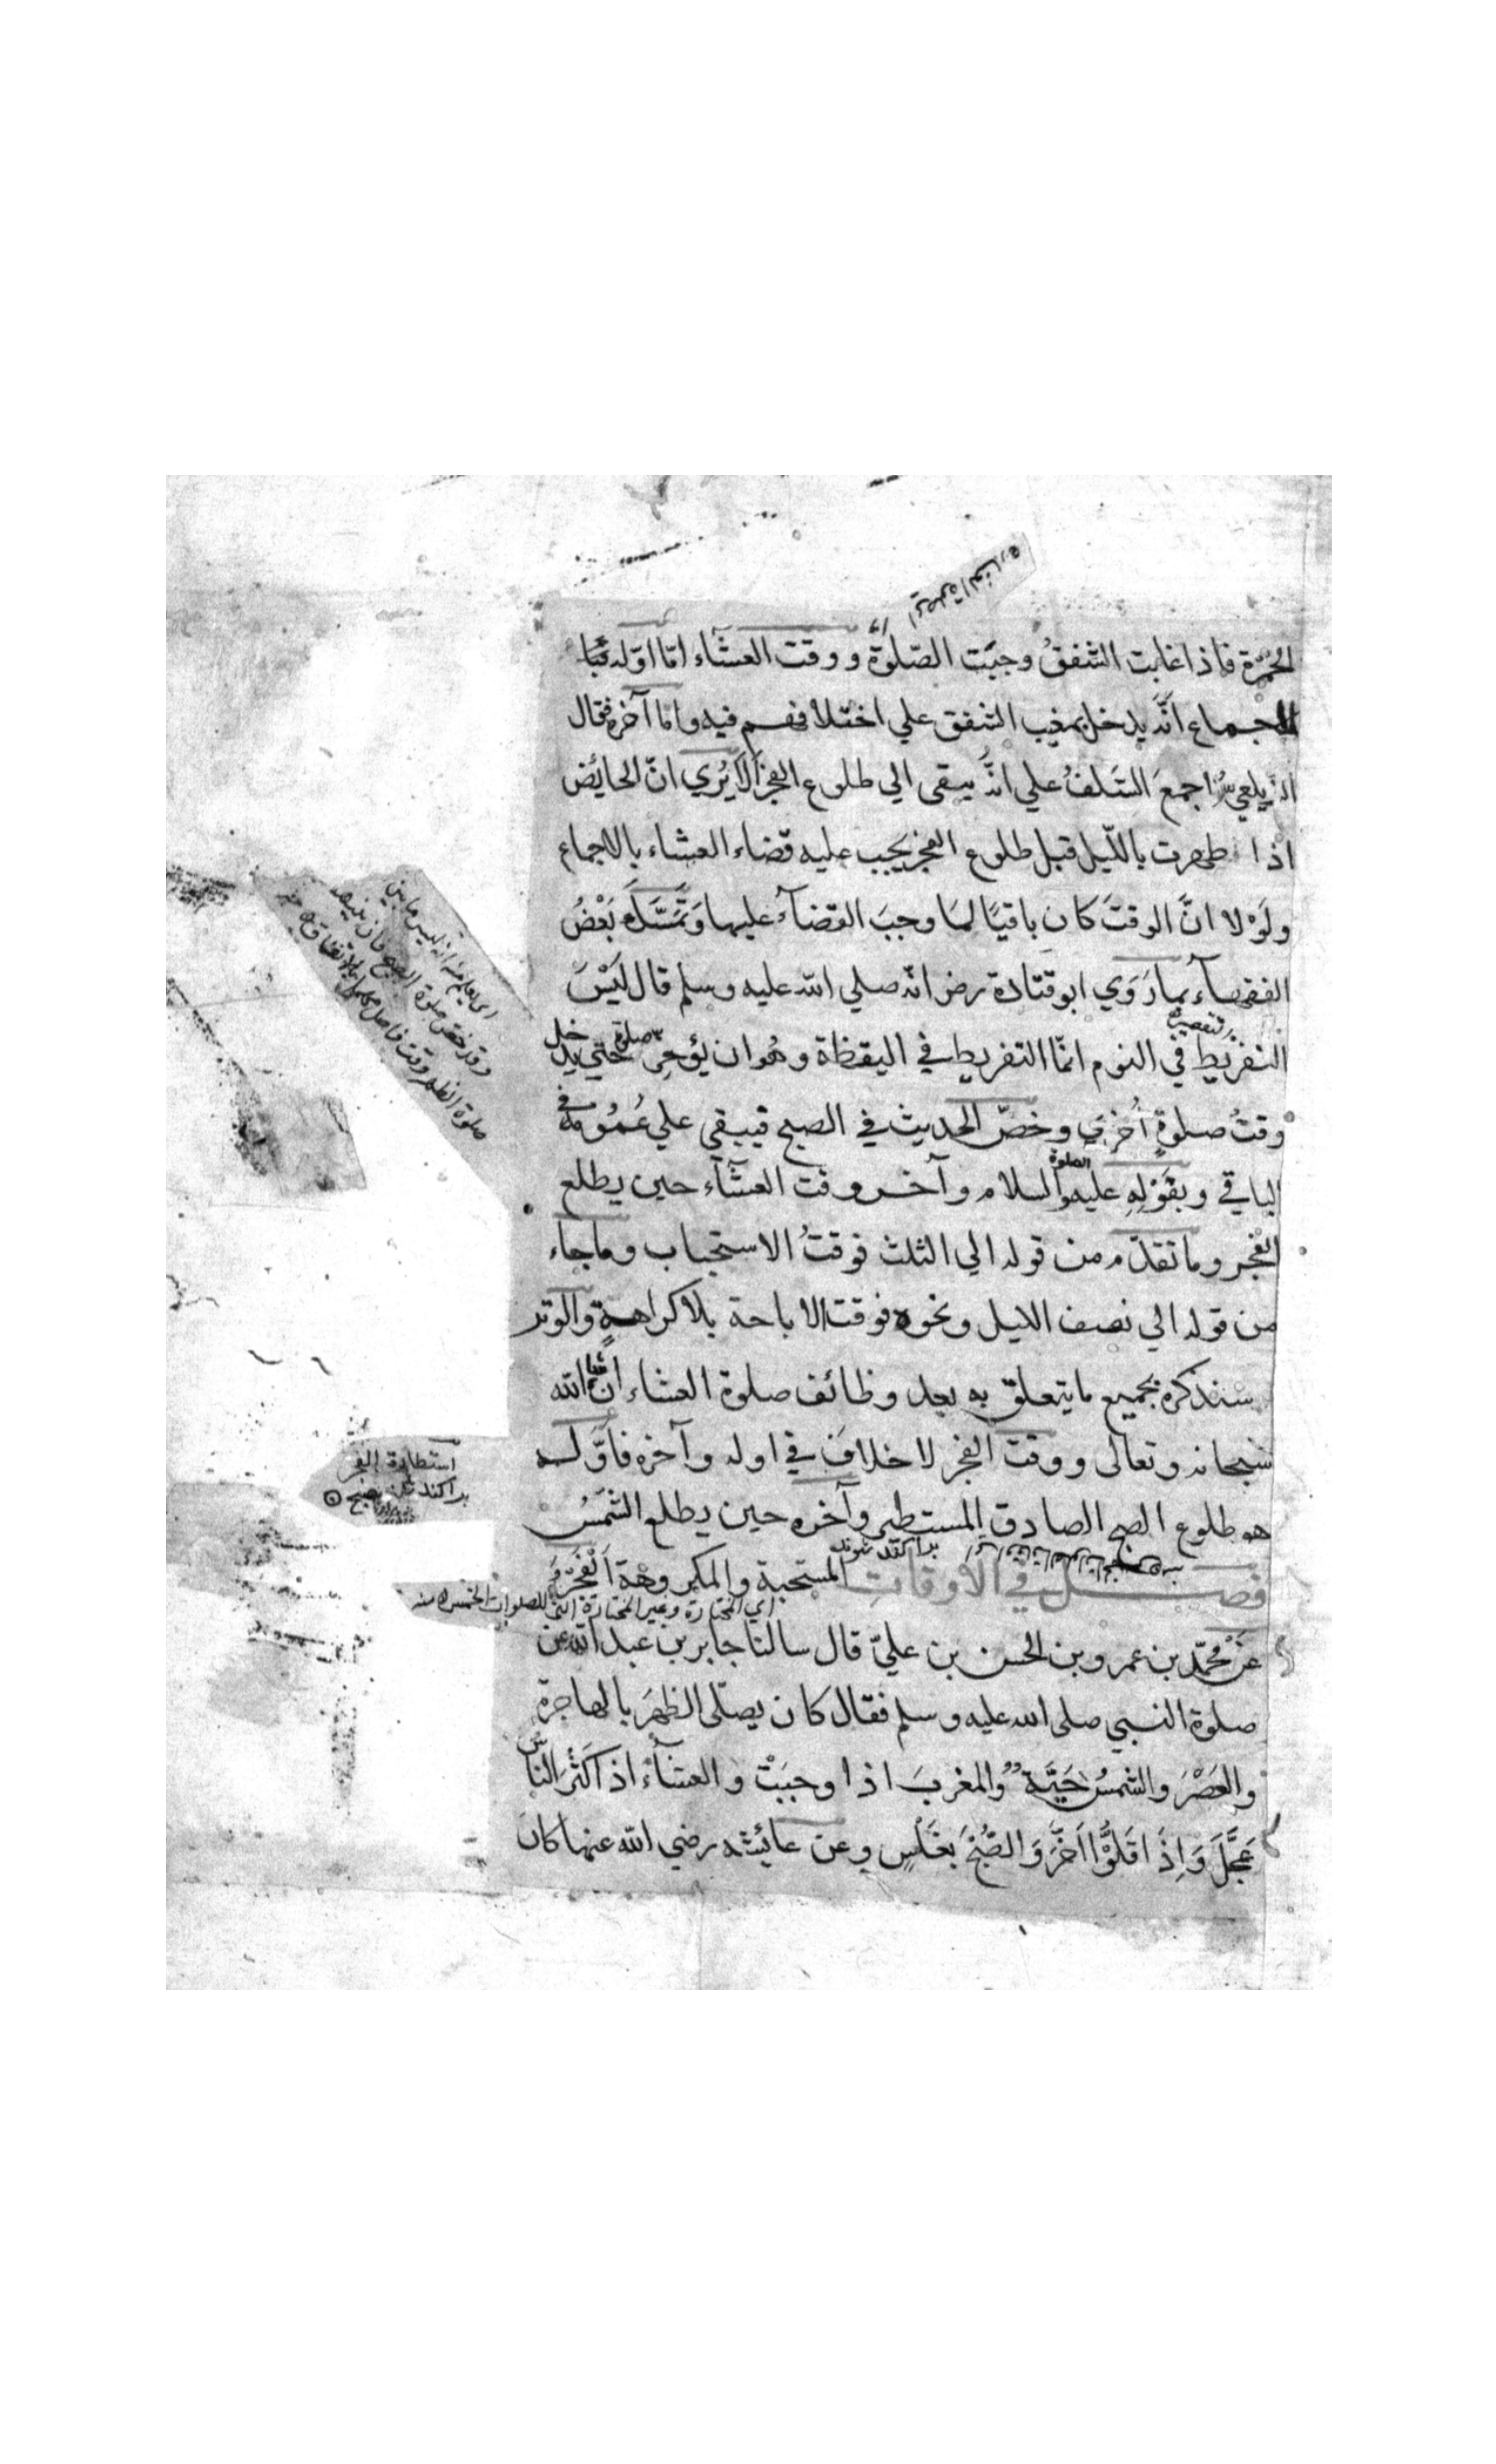 الحُمْرَة فاذا غابت الشفقُ وجبَت الصّلوٰةُ ووقت العشآء امّا اوّله فبا
لاجماع انّه يدخل بمغيب الشفق علي اختلافهم فيه واما آخره فقال
الزيلعي اجمعَ السَّلفُ علي انَّه يبقى الي طلوع الفجر اَلاَ يُرَي انّ الحائض
اذا طهرت باللّيل قبل طلوع الفجر يجب عليه قضاء العشاء بالاجماع
ولَوْلا انَّ الوقتَ كان باقيًا لمَا وجبَ القضآءُ عليها وَتَمَسَّكَ بَعْضُ
الفقهآء بما رَوَي ابو قتادة رض انّه صلي الله عليه وسلم قال لَيْسَ
التفريط في النوم انمّا التفريط في اليقظة وهُو ان يؤخر صلوة حتي يدخل
وقتُ صلوةٍ اُخرَي وخصّ الحديث في الصبح فيبقي علي عُمُومه في
الباقي وبقَوْلِهِ عليه الصلوة والسلام وآخر وقت العشآء حين يطلع
الفجر وما تقدّم من قوله الي الثلث فوقتُ الاستحباب وماجاء
من قوله الي نصف الليل ونحوه فوقت الاباحة بلا كراهةٍ والوتر
سنذكره بجميع ما يتعلق به بعد وظائف صلوة العشاء ان شا الله
سبحانه وتعالى ووقت الفجر لا خلافَ في اوله وآخره فاوّله
هو طلوع الصبح الصادق المستطير وآخره حين يطلع الشمسُ
فصل في الاوقات المستحبة والمكروهة
اي المختارة وغير المختارة التي للصلوات الخمس
عَنْ محمّد بن عمرو بن الحسن بن عليّ قال سالنا جابر بن عبد الله عن
صلوة النبي صلى الله عليه وسلم فقال كان يصلّى الظهرَ بالهاجرة
والعَصْرَ والشمسُ حَيَّة والمغربَ اذا وجبَتْ والعشآءَ اذا كثرَ الناس
عَجَّلَ وَاِذَا قَلّوُا اَخَّرَ وَالصُّبْحَ بغَلَسٍ وعن عائشه رضي الله عنها كان
استطارة الفجر